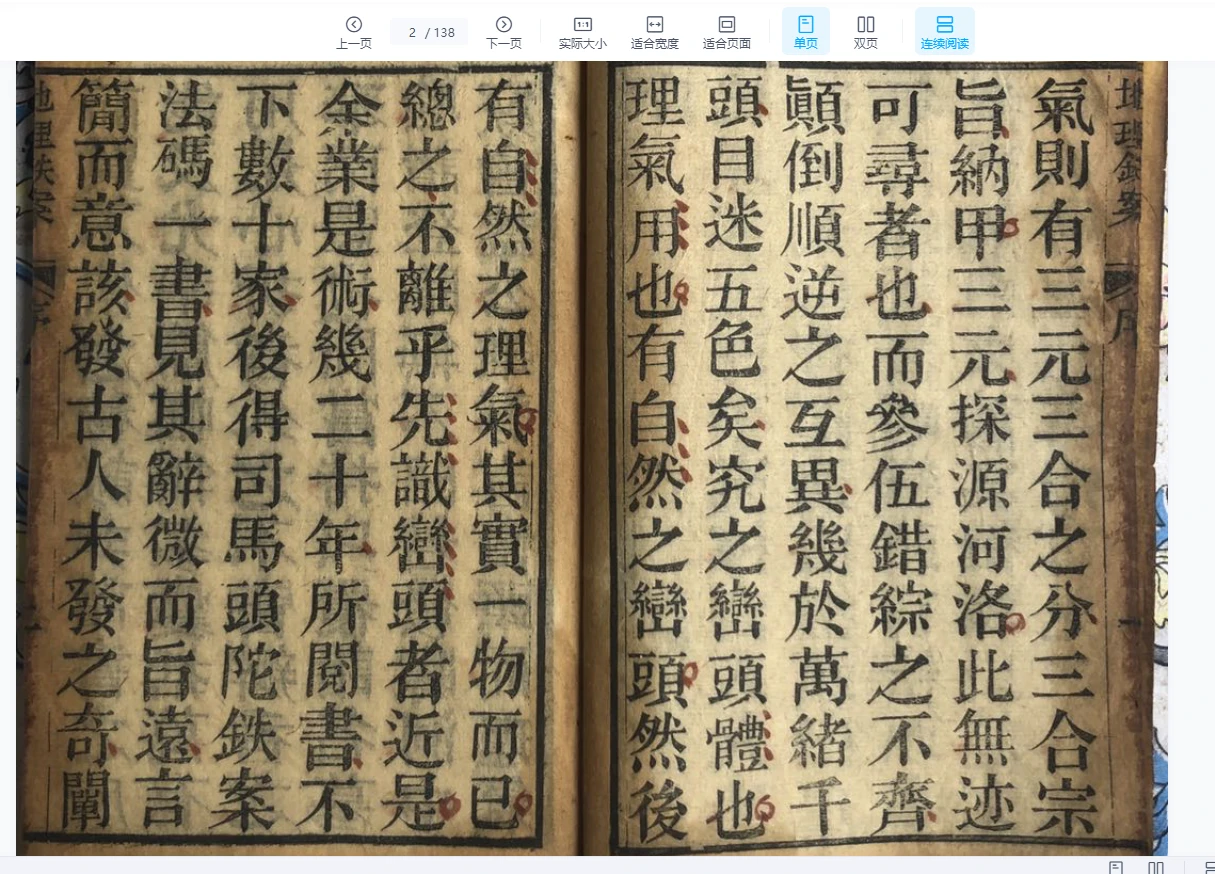 上一页
2 / 138
下一页
1:1
实际大小
适合宽度
适合页面
单页
双页
连续阅读
氣則有三元三合之分三合宗
旨納甲三元探源河洛此無迹
可尋者也而參伍錯綜之不齊
顚倒順逆之互異幾於萬緒千
頭目迷五色矣究之巒頭體也
理氣用也有自然之巒頭然後
有自然之理氣其實一物而已
總之不離乎先識巒頭者近是
余業是術幾二十年所閱書不
下數十家後得司馬頭陀鉄案
法碼一書見其辭微而旨遠言
簡而意該發古人未發之奇闡